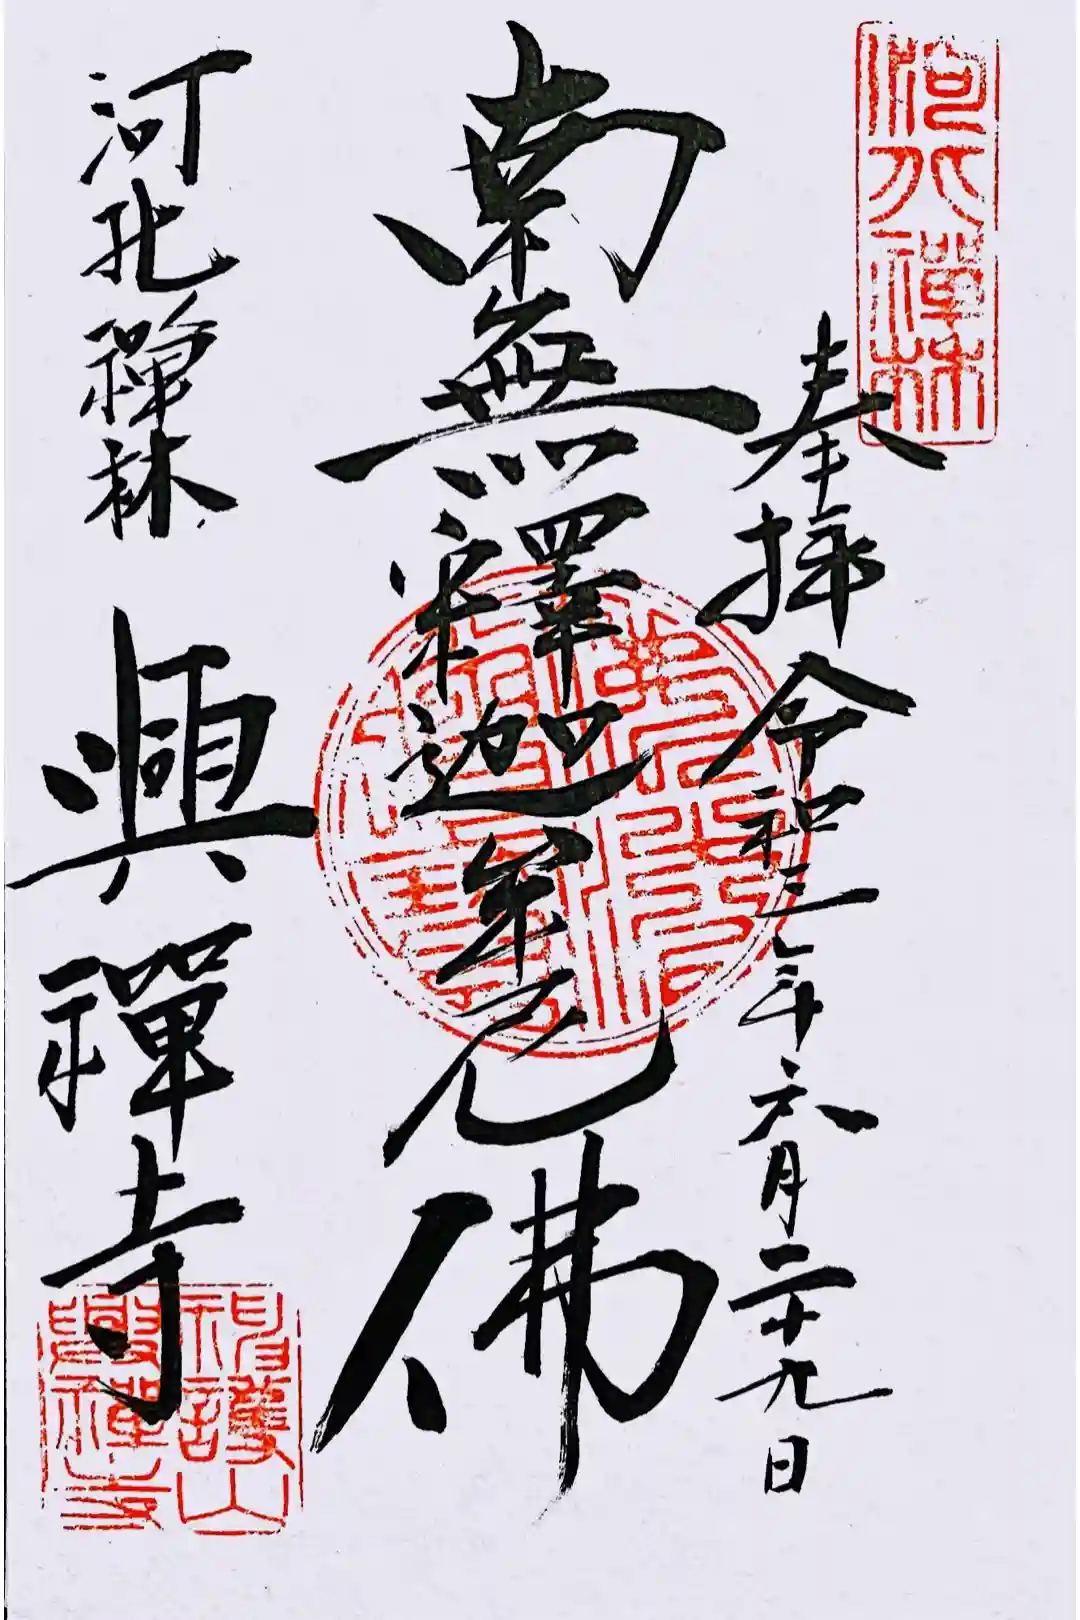 河北禪林
奉拝 令和三年六月二十九日
南無釋迦牟尼佛
河北禪林 興禪寺
護山
興禪寺